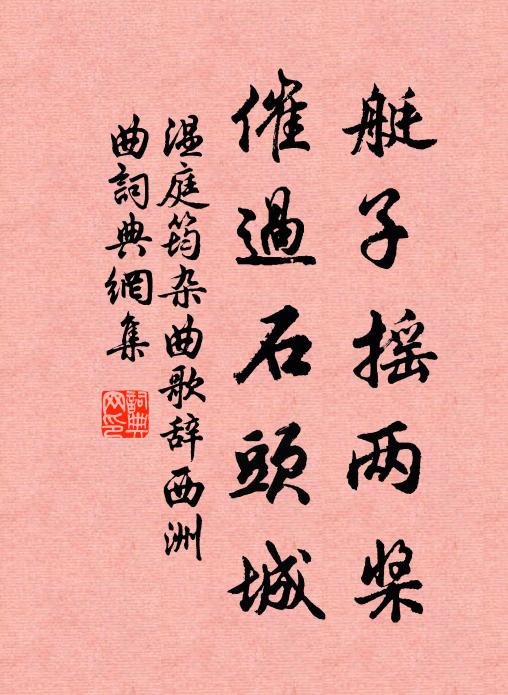 艇子摇两桨
催過石頭城
温庭筠杂曲歌辞西洲
曲詞典網集
詞典
网印